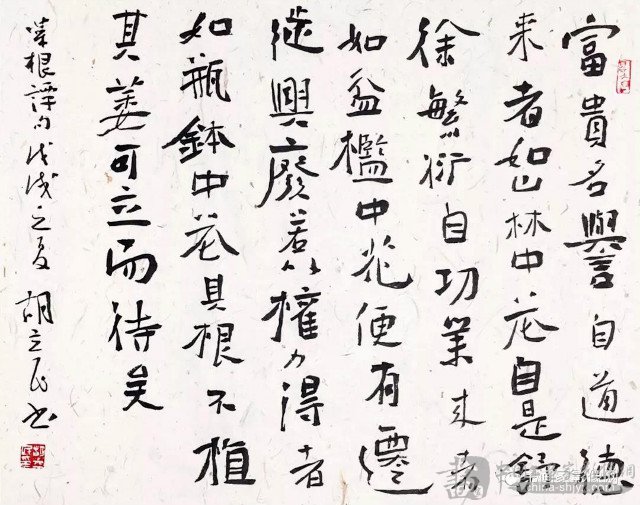 富貴名譽自道德
来者如山林中花自是舒
徐繁衍自功業来者
如盆檻中花便有遷
徙興廢若以權力得者
如瓶鉢中花其根不植
其萎可立而待矣
菜根譚句戊戌之夏胡立民书